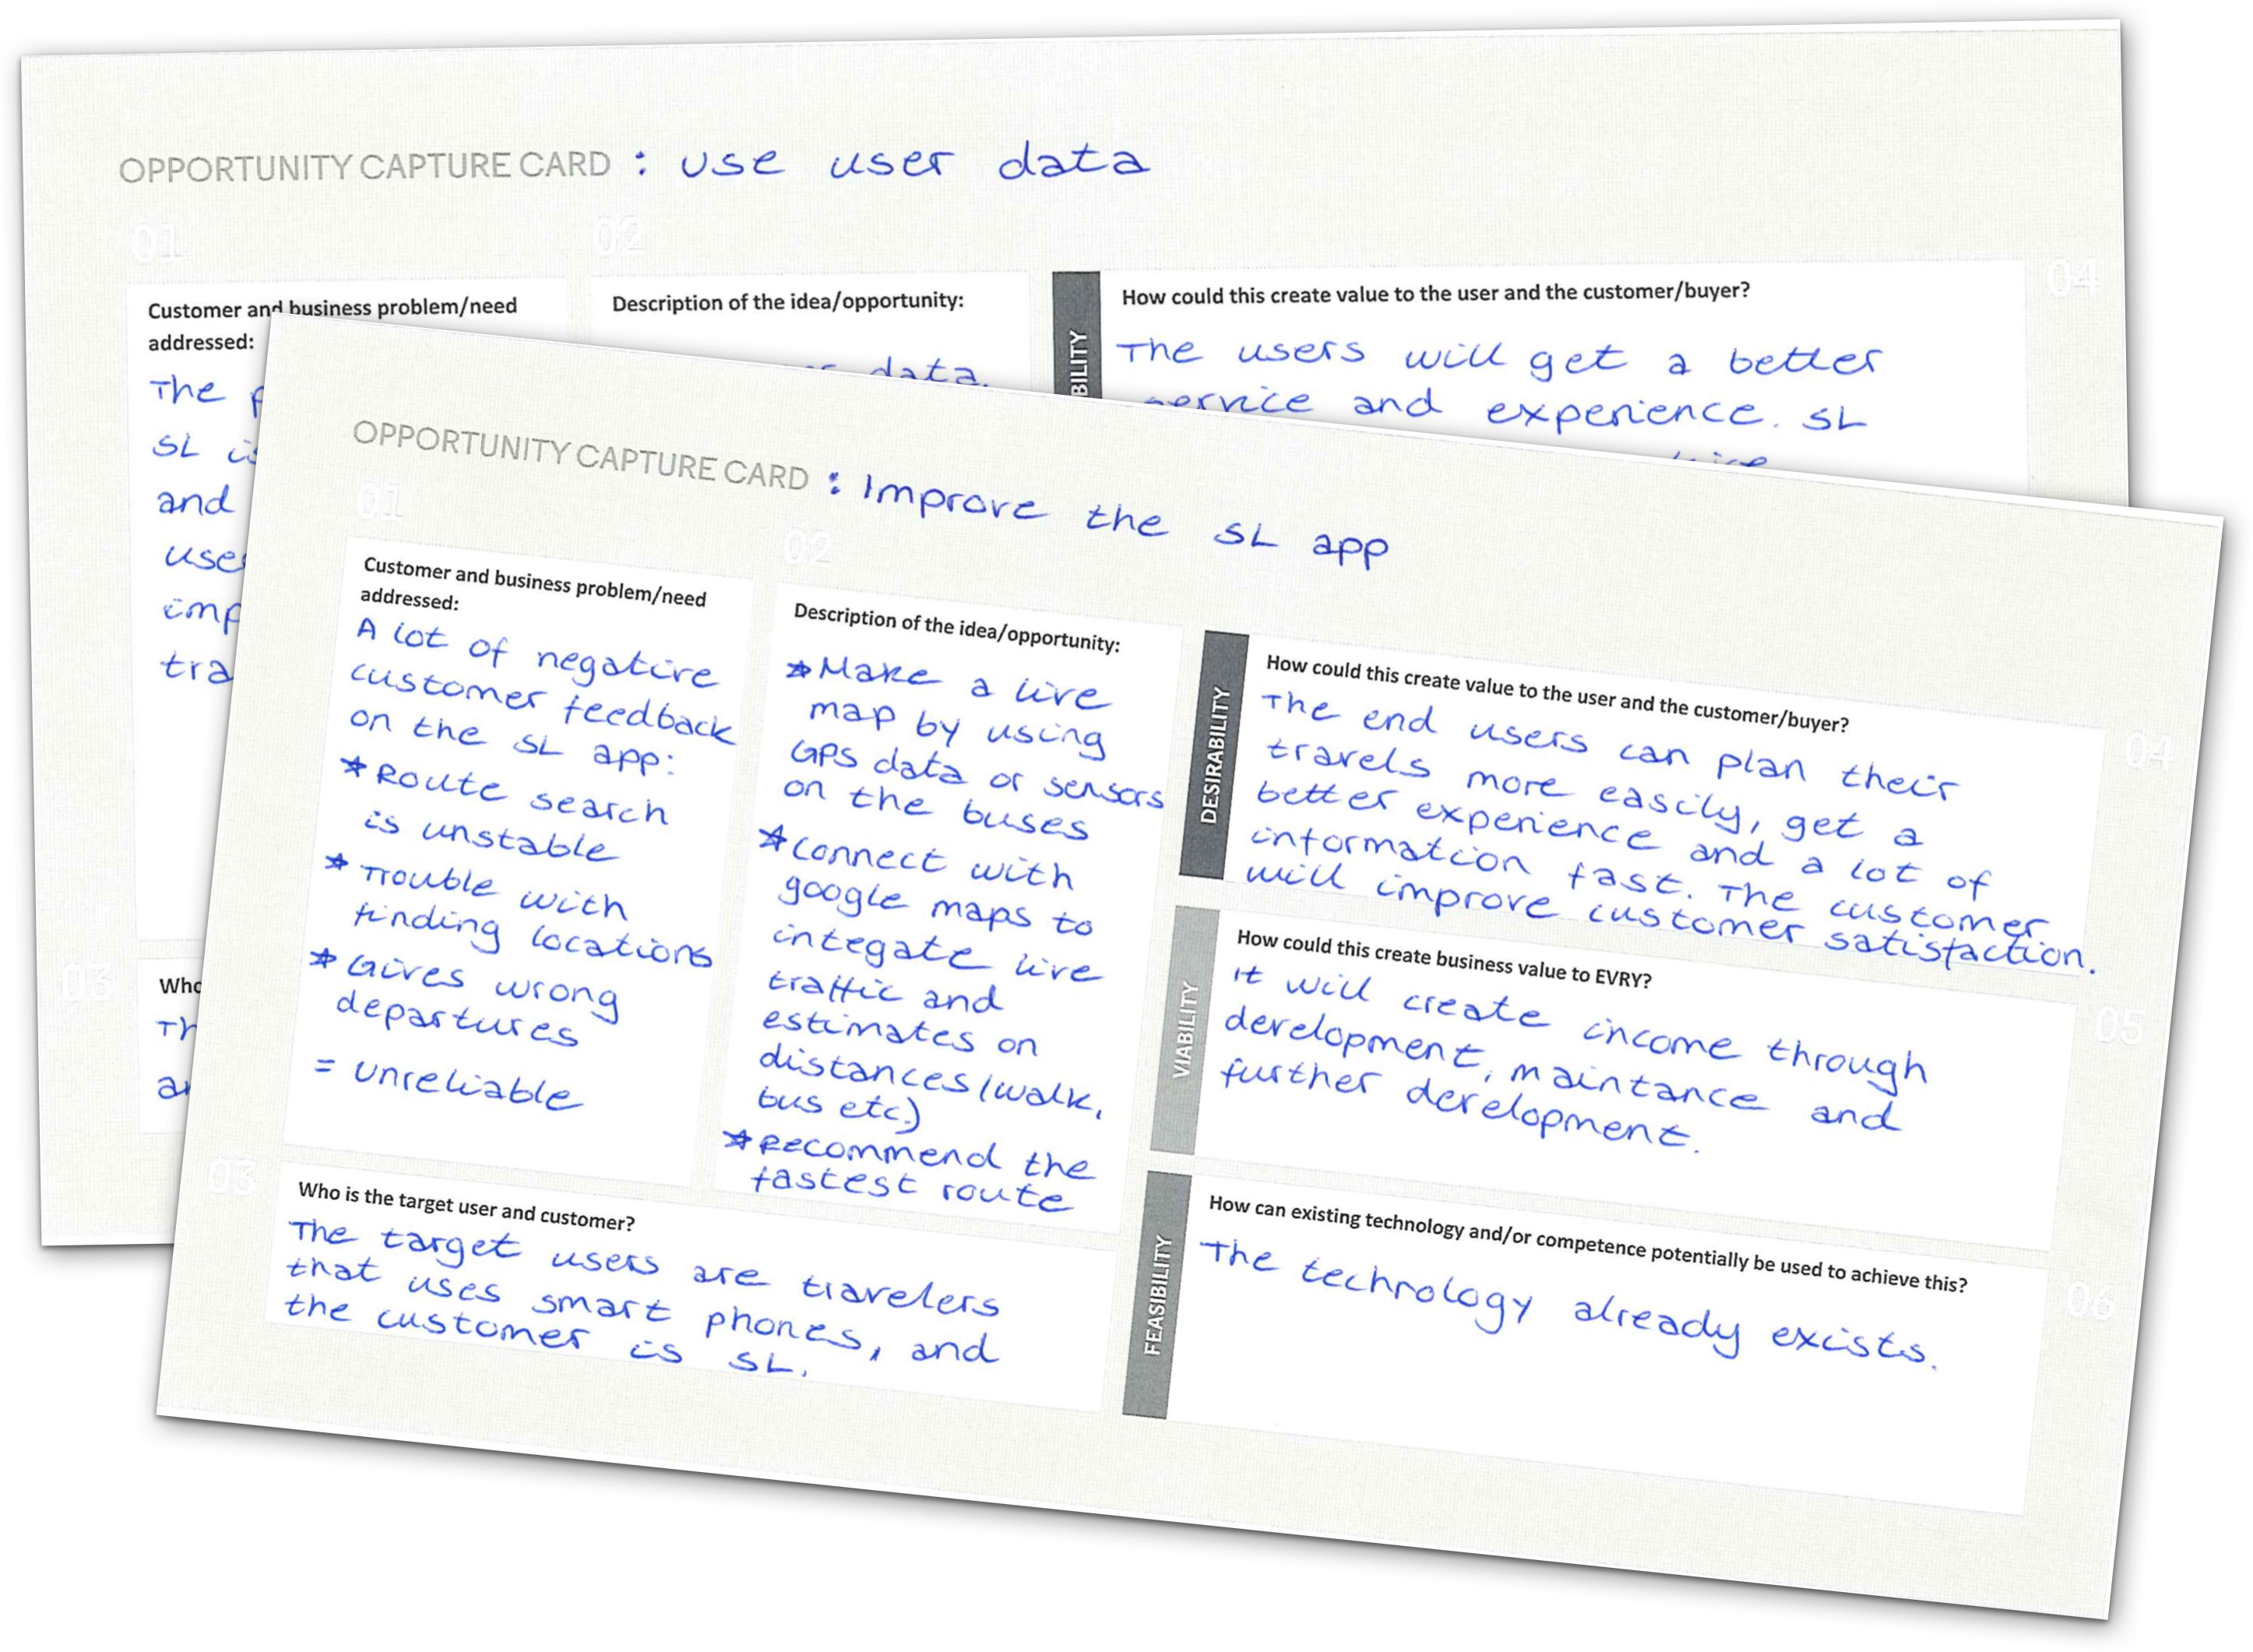 OPPORTUNITY CAPTURE CARD : use user data
01
02
04
Customer and business problem/need
addressed:
The
SL is
and
Description of the idea/opportunity:
data.
BILITY
How could this create value to the user and the customer/buyer?
The users will get a better
service and experience. SL
03
OPPORTUNITY CAPTURE CARD : Improve the SL app
01
02
Customer and business problem/need
addressed:
A lot of negative
customer feedback
on the SL app:
* Route search
is unstable
* Trouble with
finding locations
* Gives wrong
departures
= unreliable
Description of the idea/opportunity:
* Make a live
map by using
GPS data or sensors
on the buses
* Connect with
google maps to
integate live
traffic and
estimates on
distances (walk,
bus etc.)
* Recommend the
fastest route
03
Who is the target user and customer?
The target users are travelers
that uses smart phones, and
the customer is SL.
04
DESIRABILITY
How could this create value to the user and the customer/buyer?
The end users can plan their
travels more easily, get a
better experience and a lot of
information fast. The customer
will improve customer satisfaction.
05
VIABILITY
How could this create business value to EVRY?
It will create income through
development, maintance and
further development.
06
FEASIBILITY
How can existing technology and/or competence potentially be used to achieve this?
The technology already exists.